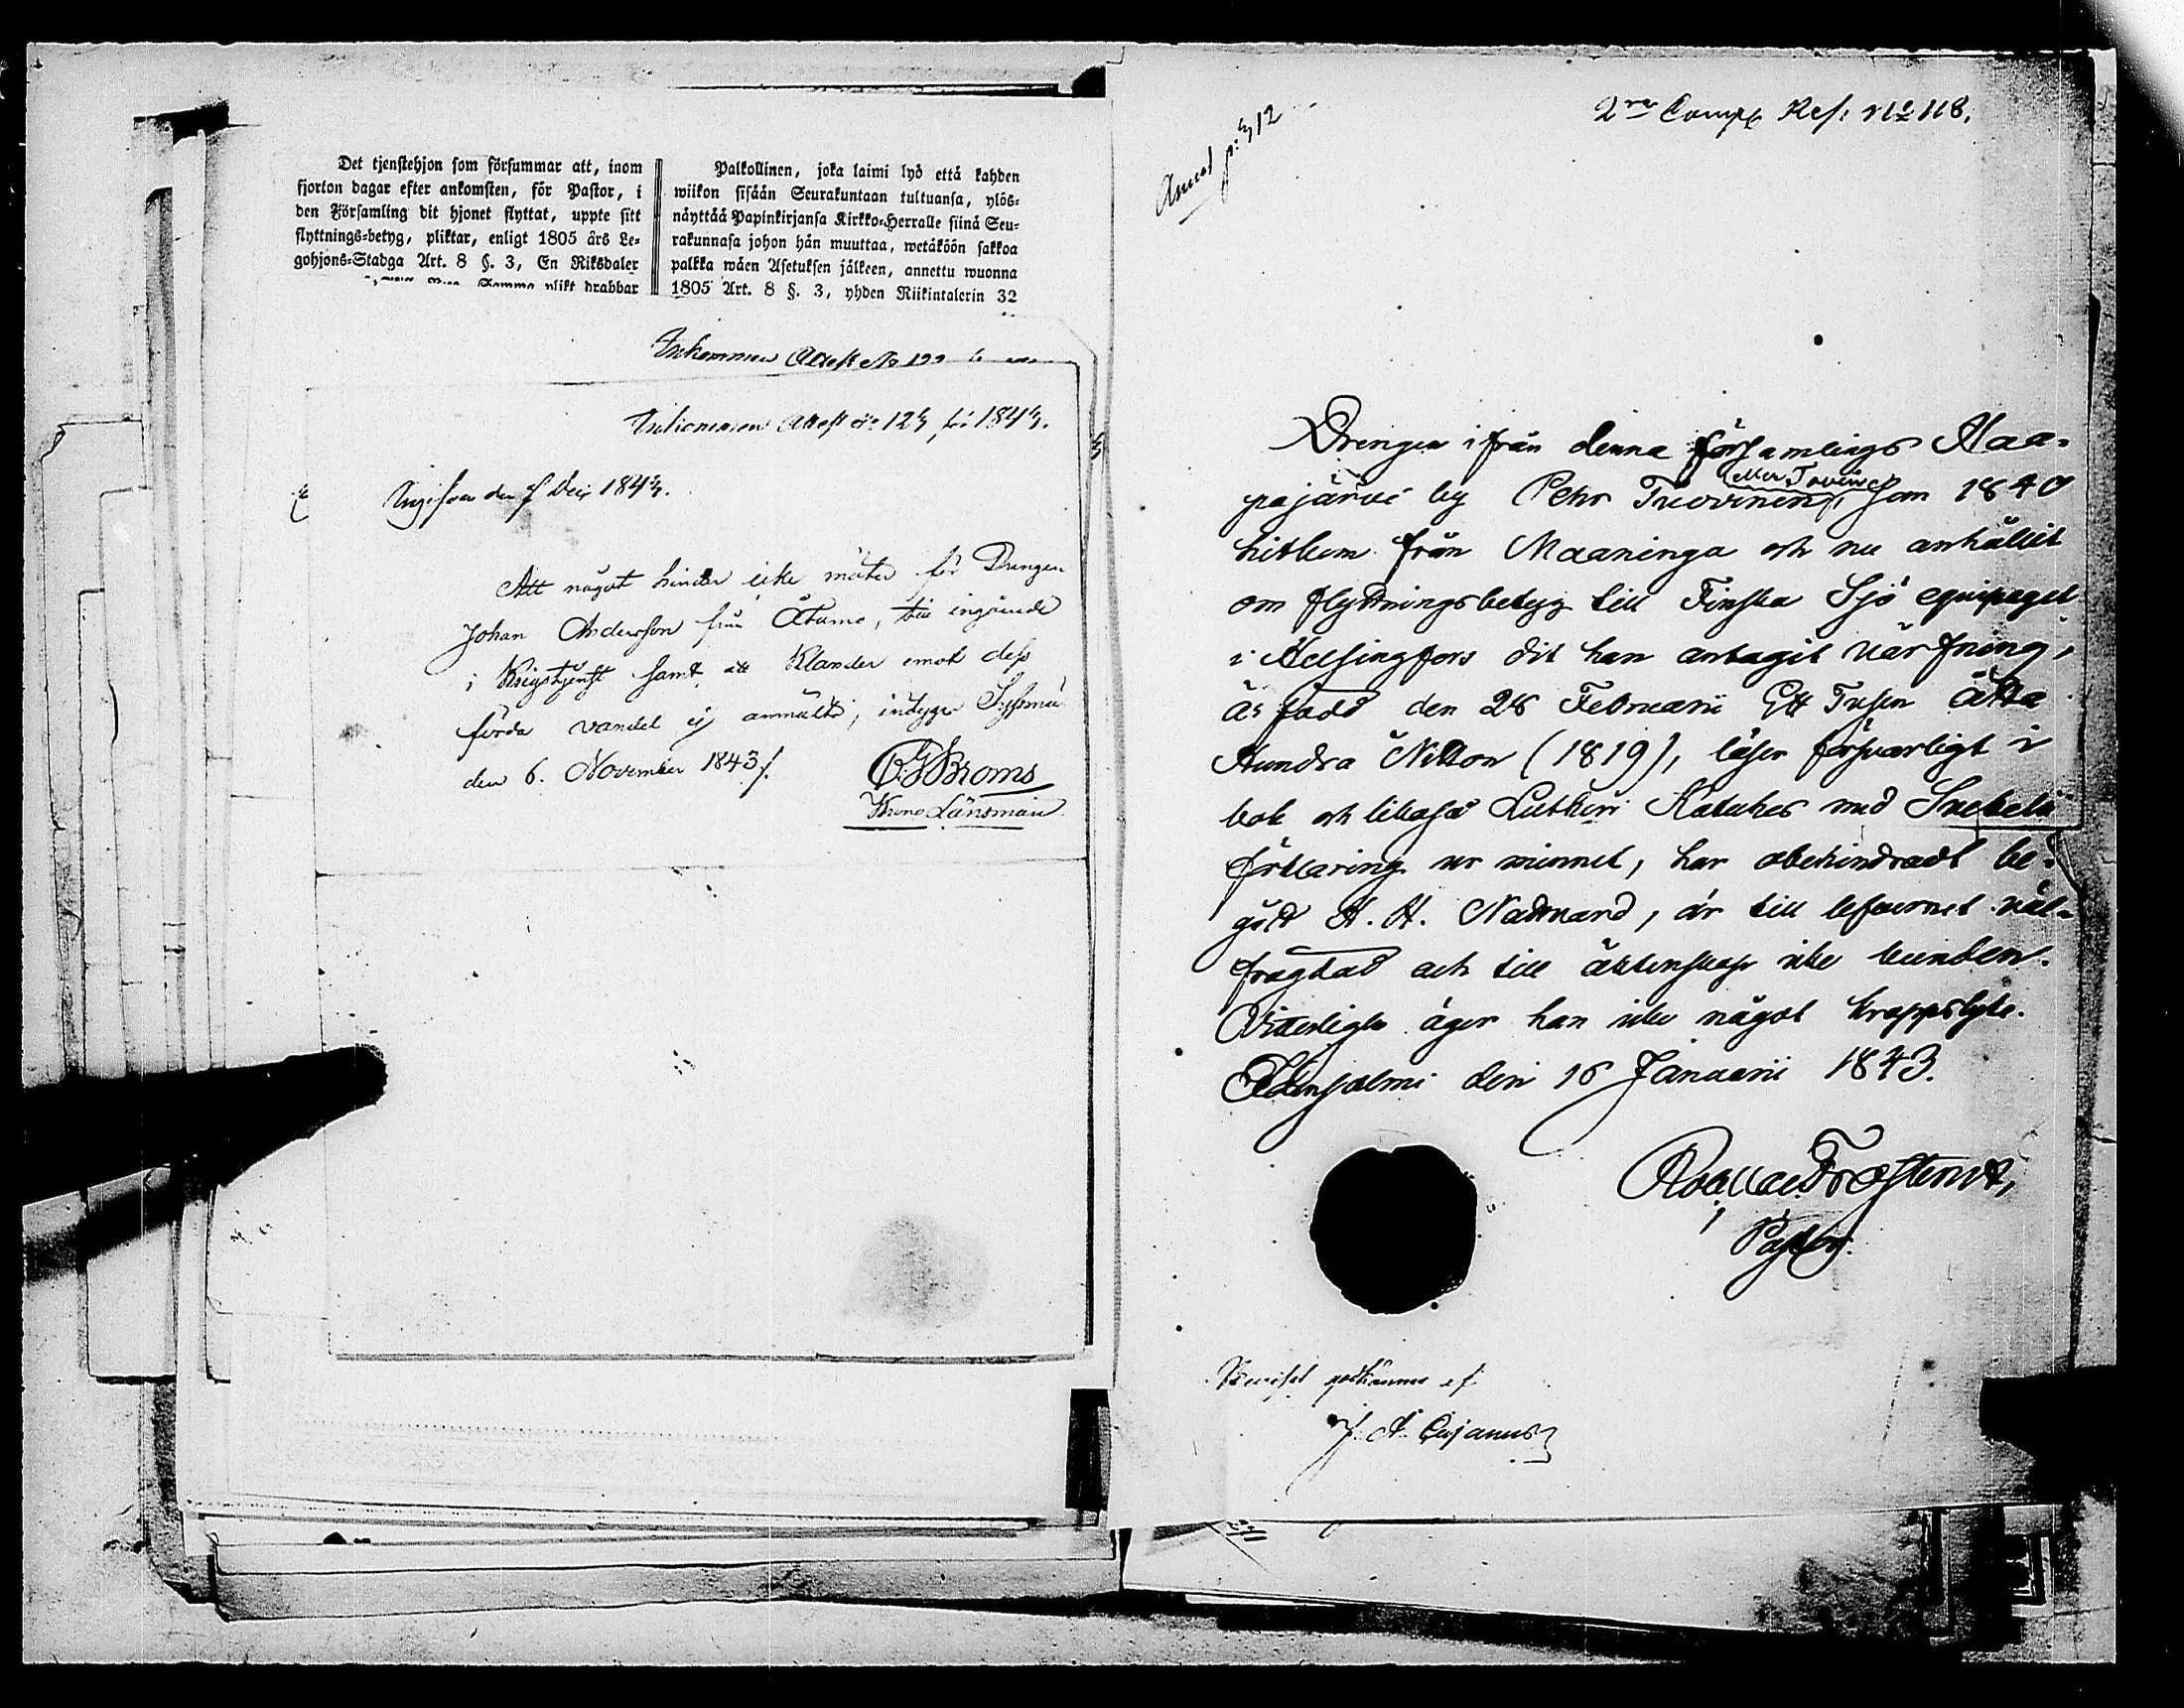 Det tjenstehjon som försummar att, inom
fjorton dagar efter ankomsten, för Pastor, i
den Församling dit hjonet flyttat, uppte sitt
flyttnings-betyg, pliktar, enligt 1805 års Le-
gohjons-Stadga Art. 8 §. 3, En Riksdaler
plikt drabbar
Palkollinen, joka laimi lyö että kahden
wiikon sisään Seurakuntaan tultuansa, ylös-
näyttää Papinkirjansa Kirkko-Herralle siinä Seu-
rakunnasa johon hän muuttaa, wetäköön sakkoa
palkka wäen Asetuksen jälkeen, annettu wuonna
1805 Art. 8 §. 3, yhden Riikintalerin 32
Inkommen Attest No
Inkommen Attest No 123 för 1843.
den 7 Dec 1843.
Att något hinder icke möter för Drengen
Johan Andersson från Åtume, till ingående
i Krigstjenst samt att Klander emot dess
förda vandel ej anmälts, intygar Syssmä
den 6. November 1843/.
C. G. Broms
Krono Länsman
2ra Comp Ref: No 118.
Annot p: 312
Drengen ifrån denna församlings Haa-
pajärvi by Pehr Tuovinen, som 1840
eller Tavin
hitkom från Maaninga och nu anhållit
om flyttningsbetyg till Finska Sjö equipaget
i Helsingfors dit han antagit värfning,
är född den 28 Februarii Ett Tusen åtta
Hundra Nitton (1819), läser försvarligt i
bok och likaså Lutheri Kateches med Svebelii
förklaring ur minnet, har obehindradt be-
gått H. H. Nattvard, är till lefvernet väl-
fragdad och till äktenskap icke bunden.
Vitterligen äger han icke något kroppslyte.
Idensalmi den 16 Januarii 1843.
Frosterus,
Pastor.
Beviset godkännes af
J. A. Cajanus